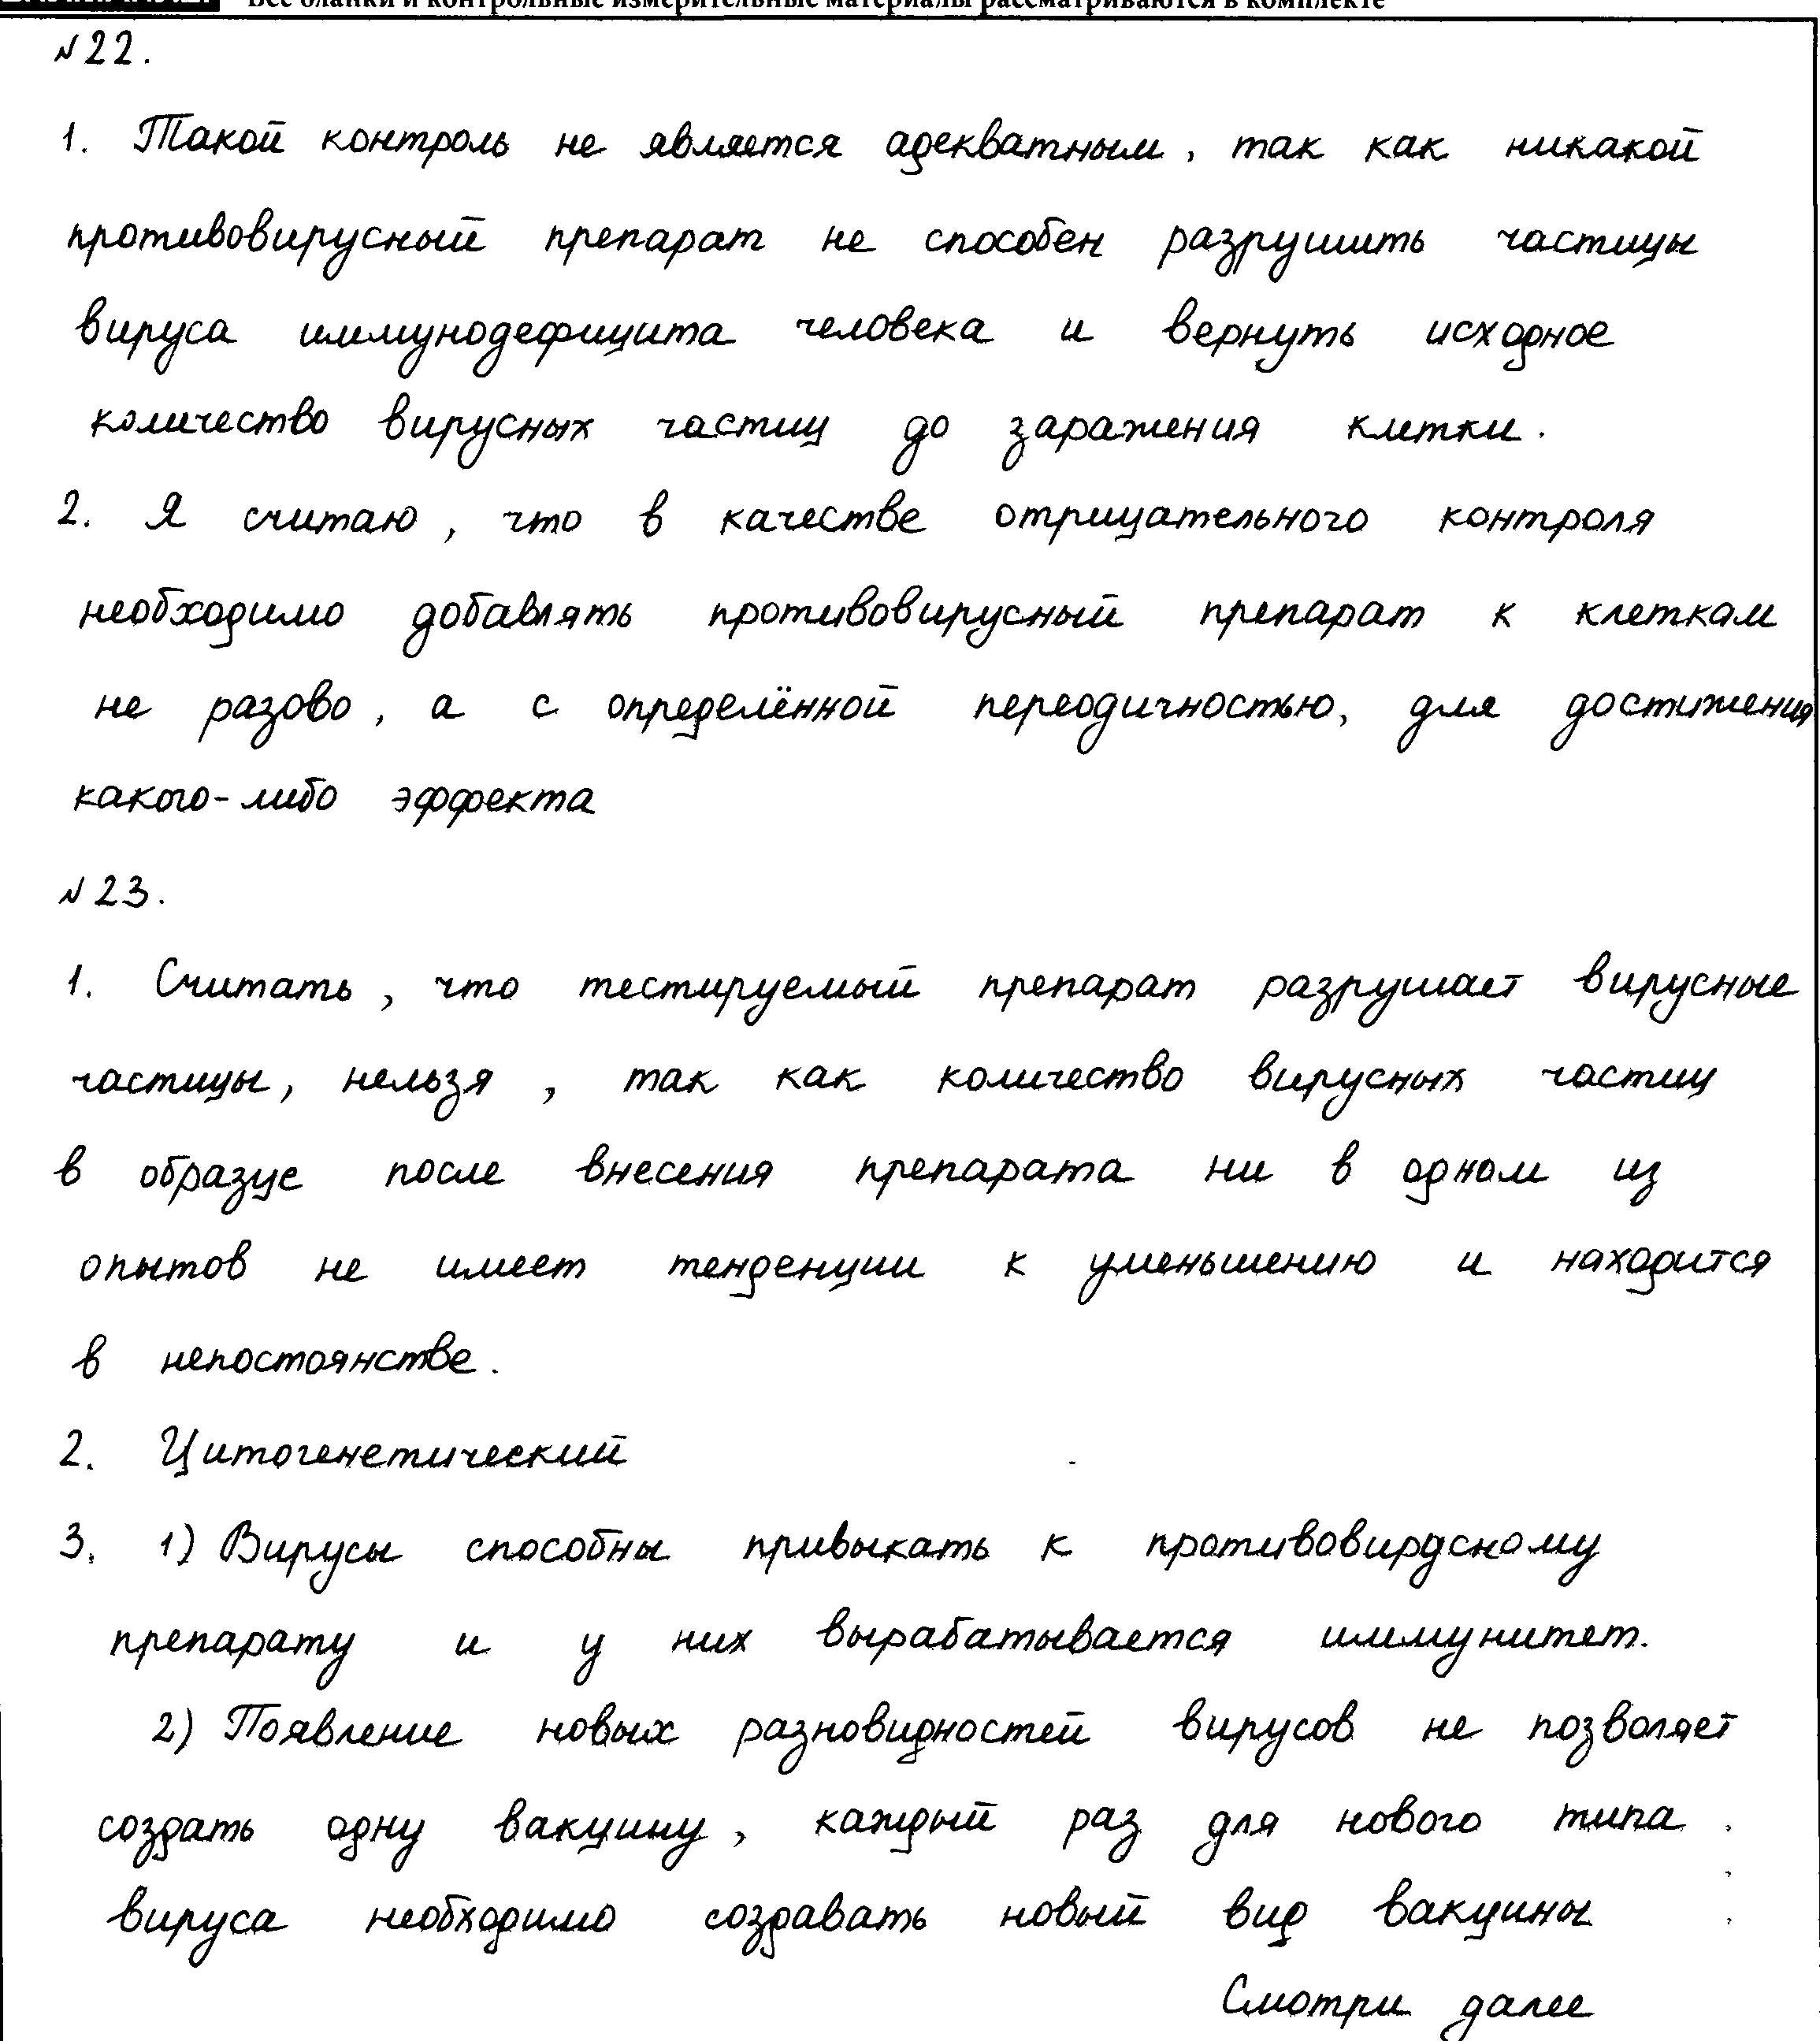 Все бланки и контрольные измерительные материалы рассматриваются в комплекте
№22.
1. Такой контроль не является адекватным, так как никакой
противовирусный препарат не способен разрушить частицы
вируса иммунодефицита человека и вернуть исходное
количество вирусных частиц до заражения клетки.
2. Я считаю, что в качестве отрицательного контроля
необходимо добавлять противовирусный препарат к клеткам
не разово, а с определённой переодичностью, для достижения
какого-либо эффекта
№23.
1. Считать, что тестируемый препарат разрушает вирусные
частицы, нельзя, так как количество вирусных частиц
в образце после внесения препарата ни в одном из
опытов не имеет тенденции к уменьшению и находится
в непостоянстве.
2. Цитогенетический
3. 1) Вирусы способны привыкать к противовирусному
препарату и у них вырабатывается иммунитет.
2) Появление новых разновидностей вирусов не позволяет
создать одну вакцину, каждый раз для нового типа
вируса необходимо создавать новый вид вакцины
Смотри далее